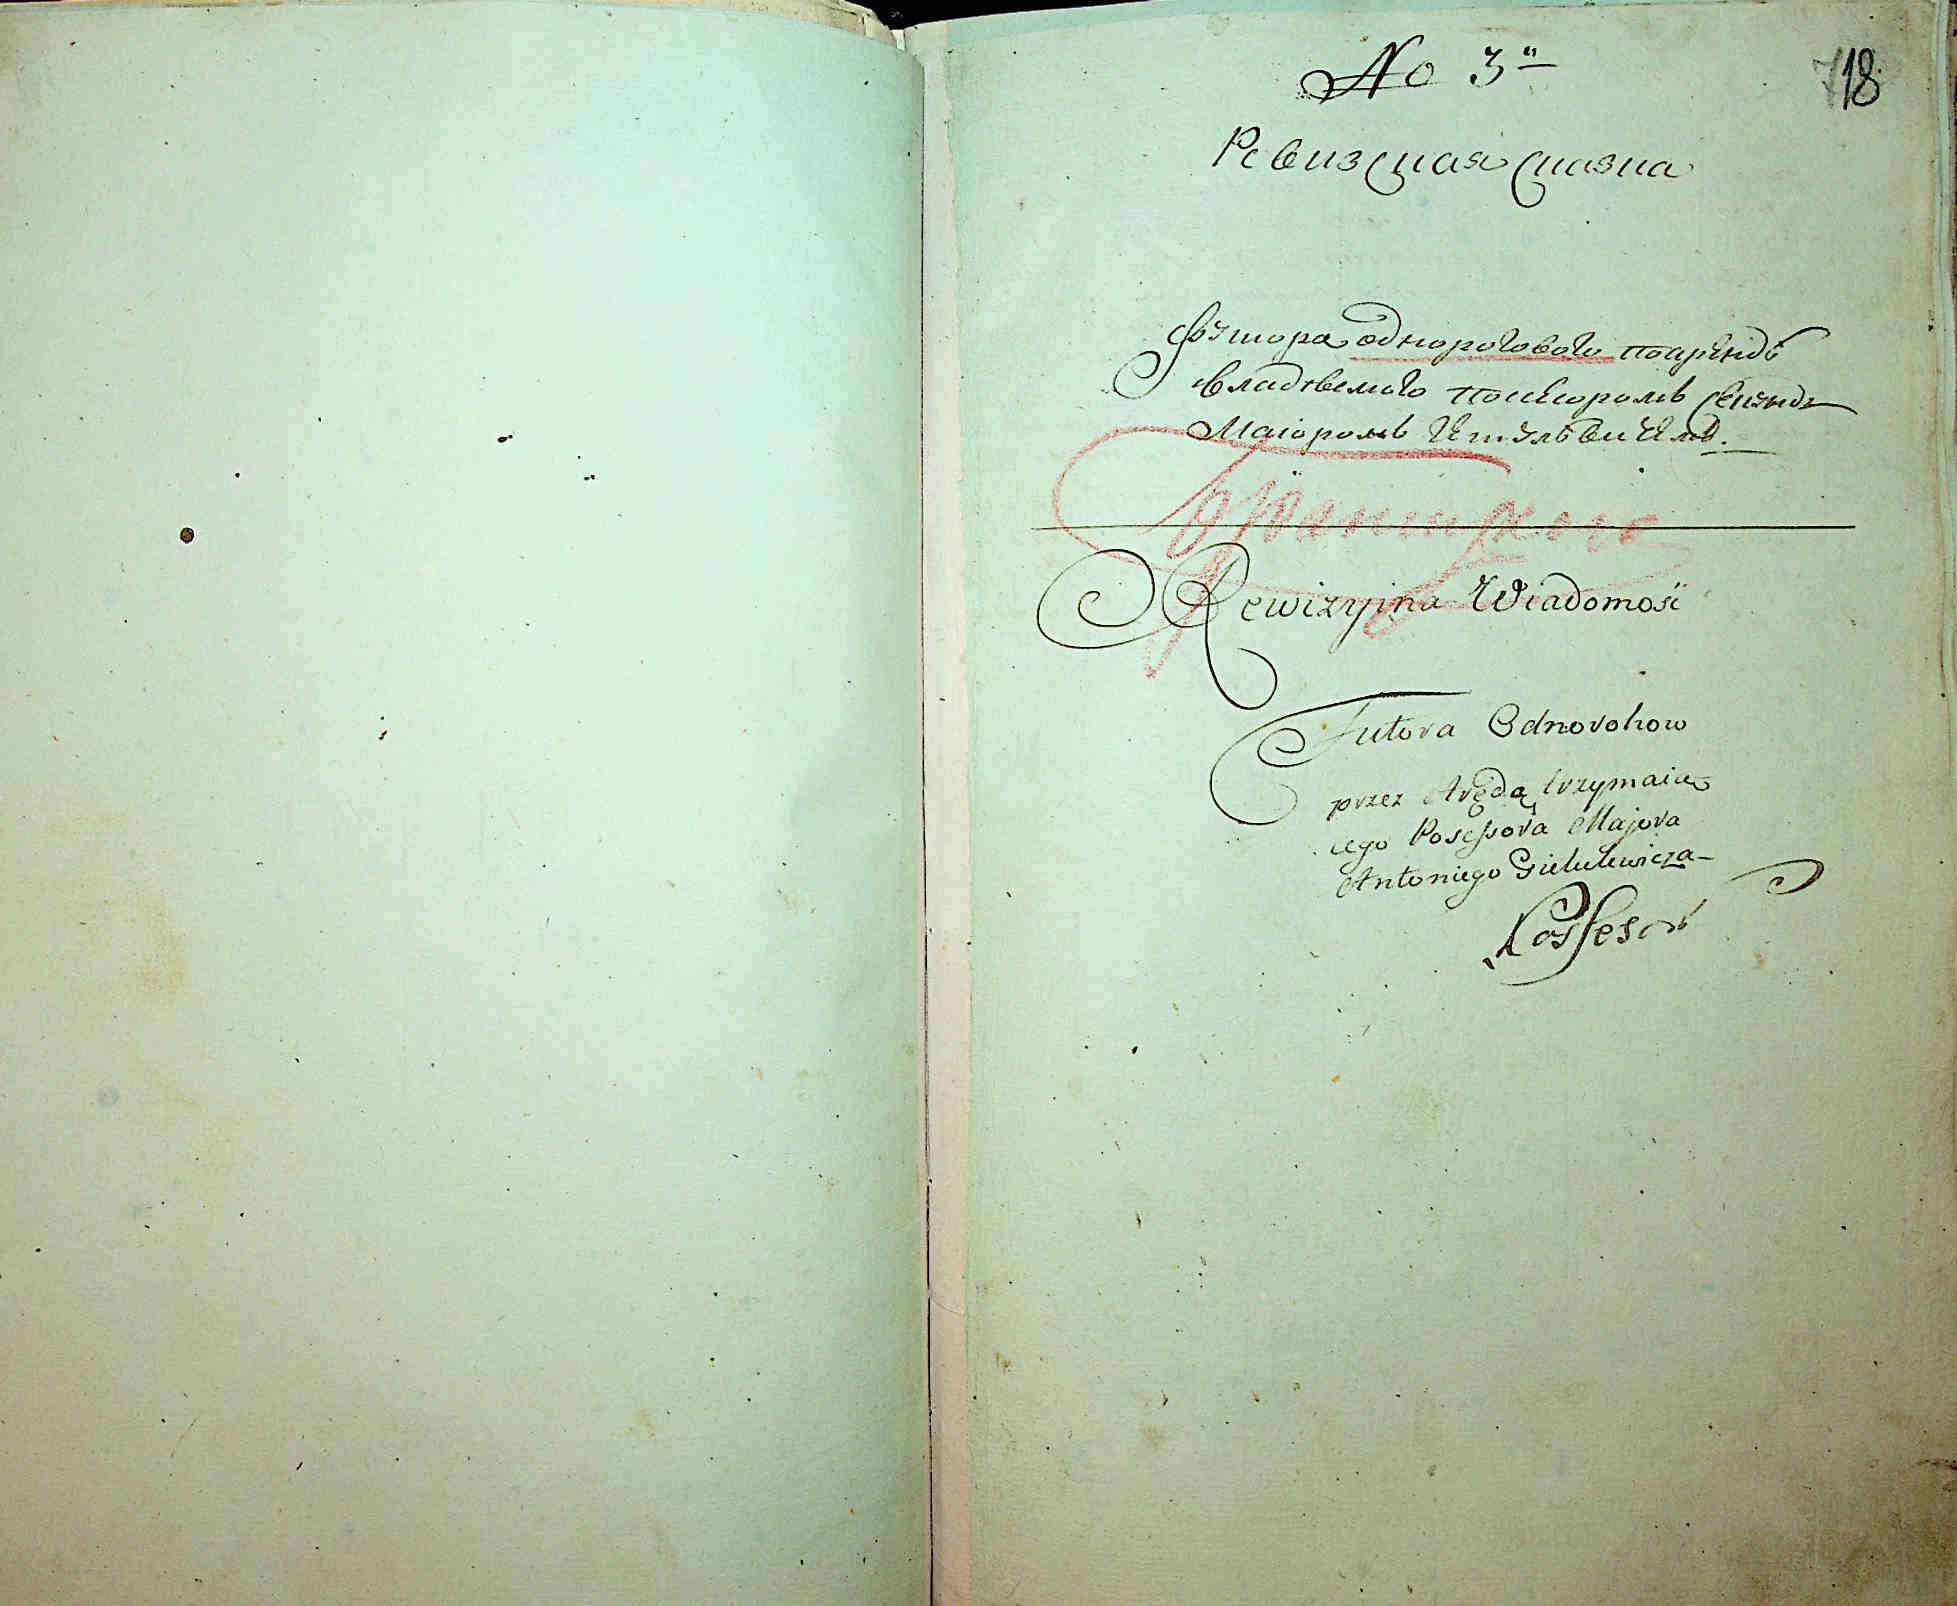 No 3й
18
Ревизская сказка
Футора однорогового поаренде
владеемого посесоромъ Секундъ
Маіоромъ
Rewizyjna Wiadomość
Futora Odnorohow
przez Arędą trzymaią
cego Posessora Majora
Antoniego Gietulewicza
Possesor